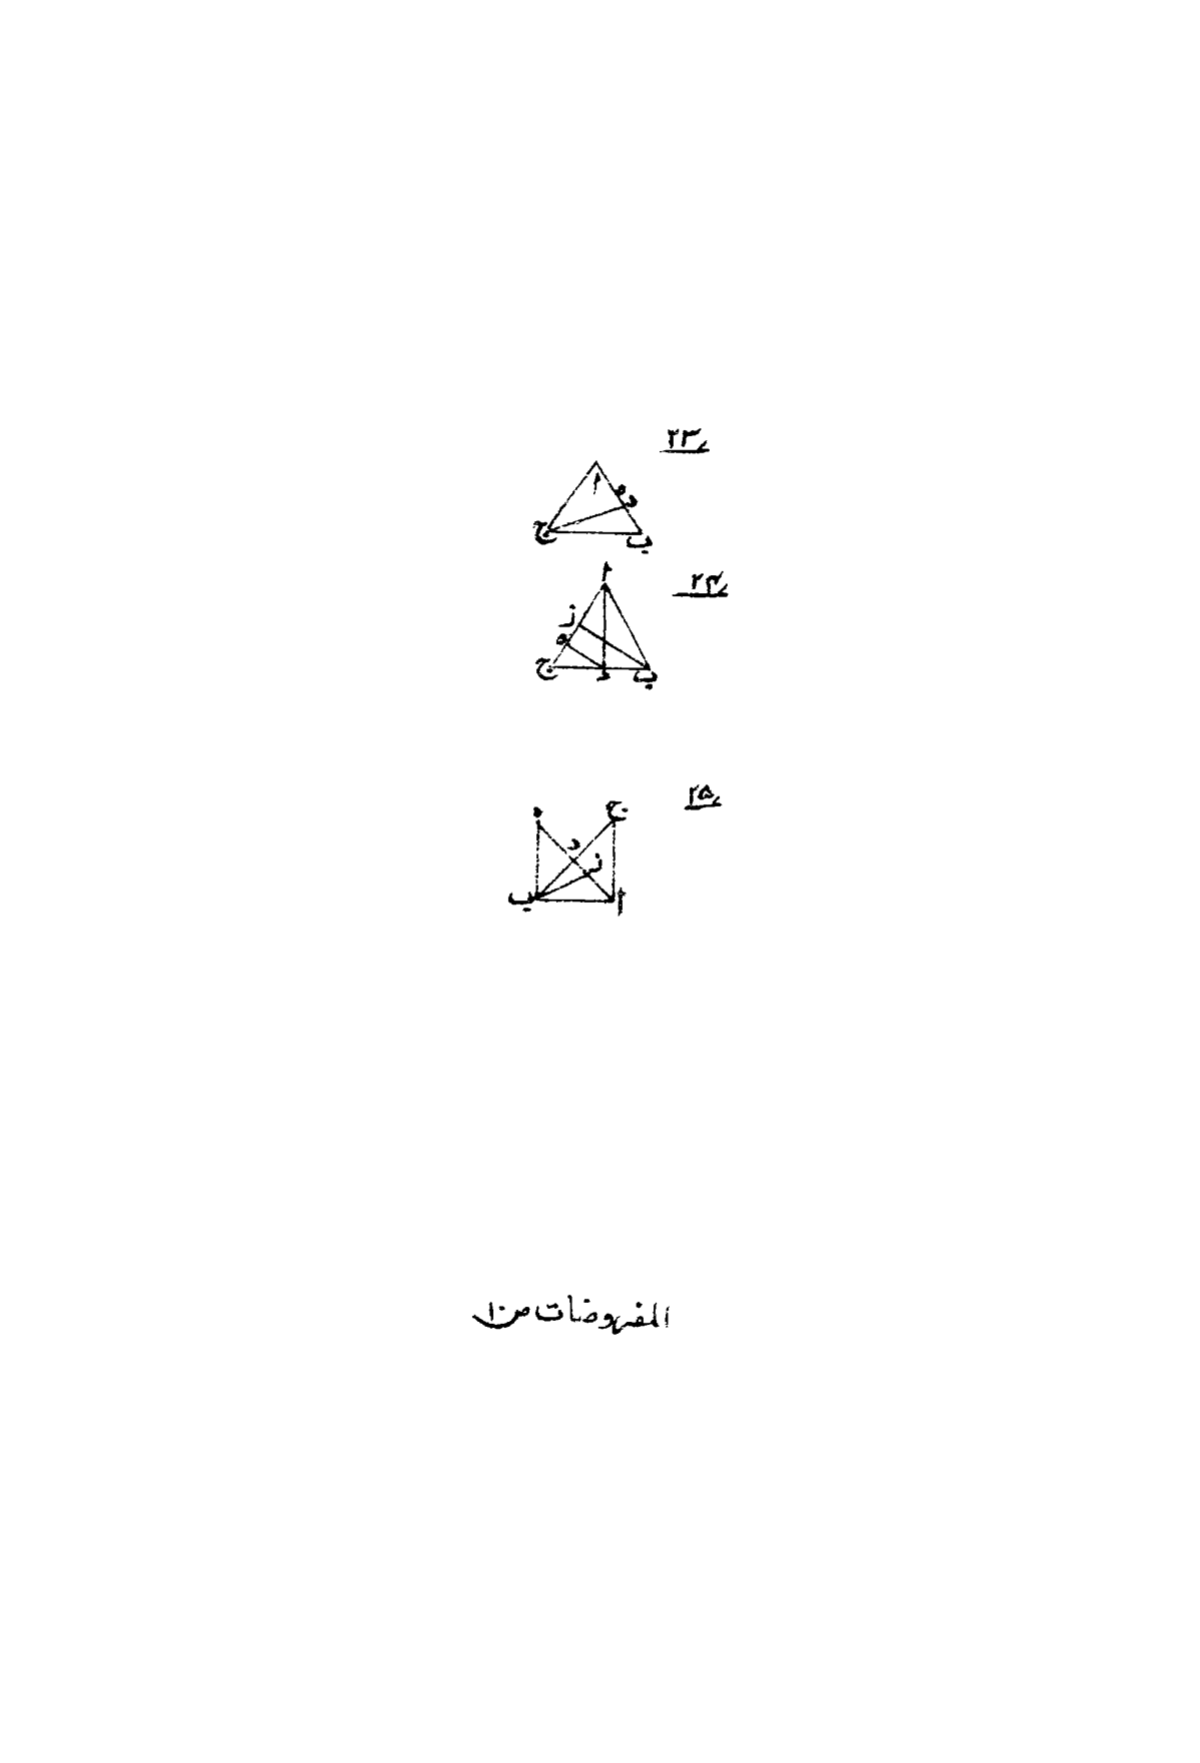 ٢٣
ا
ه
د
ج ب
٢٤
ا
ز
ه
ج د ب
٢٥
ه ج
د
ز
ب ا
المفروضات ص١٠